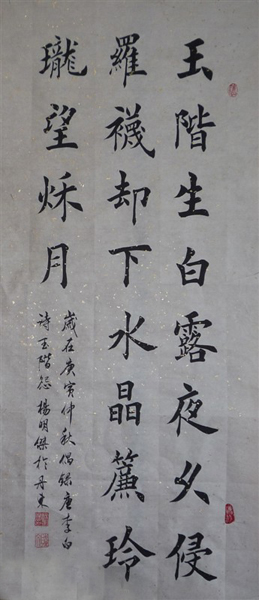 玉階生白露夜久侵
羅襪却下水晶簾玲
瓏望秌月
歲在庚寅仲秋偶錄唐李白
詩玉階怨楊明傑於丹東